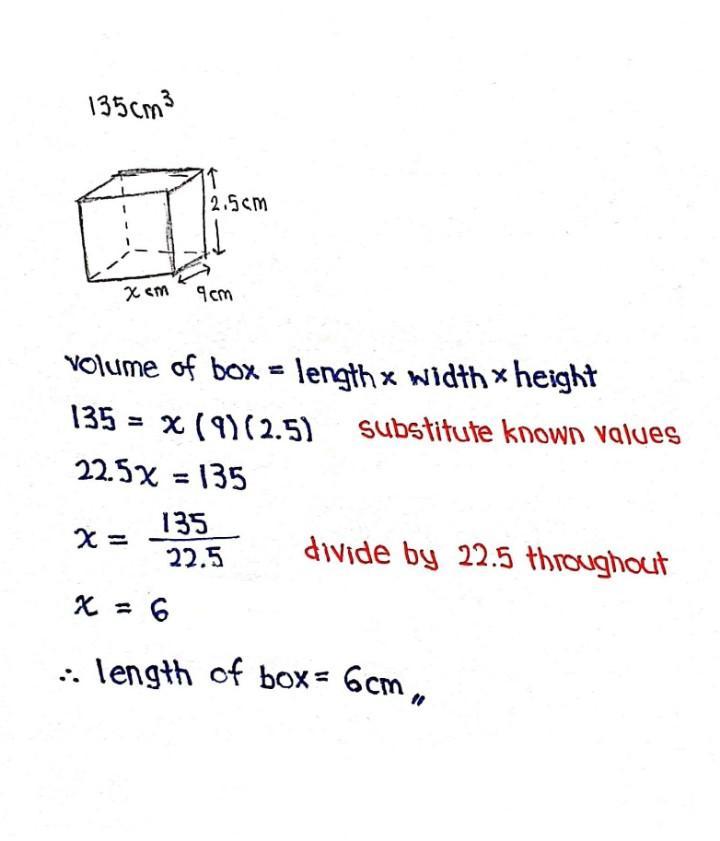 135cm³
2.5cm
x cm 9cm
volume of box = length x width x height
135 = x (9)(2.5) substitute known values
22.5x = 135
x = 135/22.5 divide by 22.5 throughout
x = 6
∴ length of box = 6cm〃